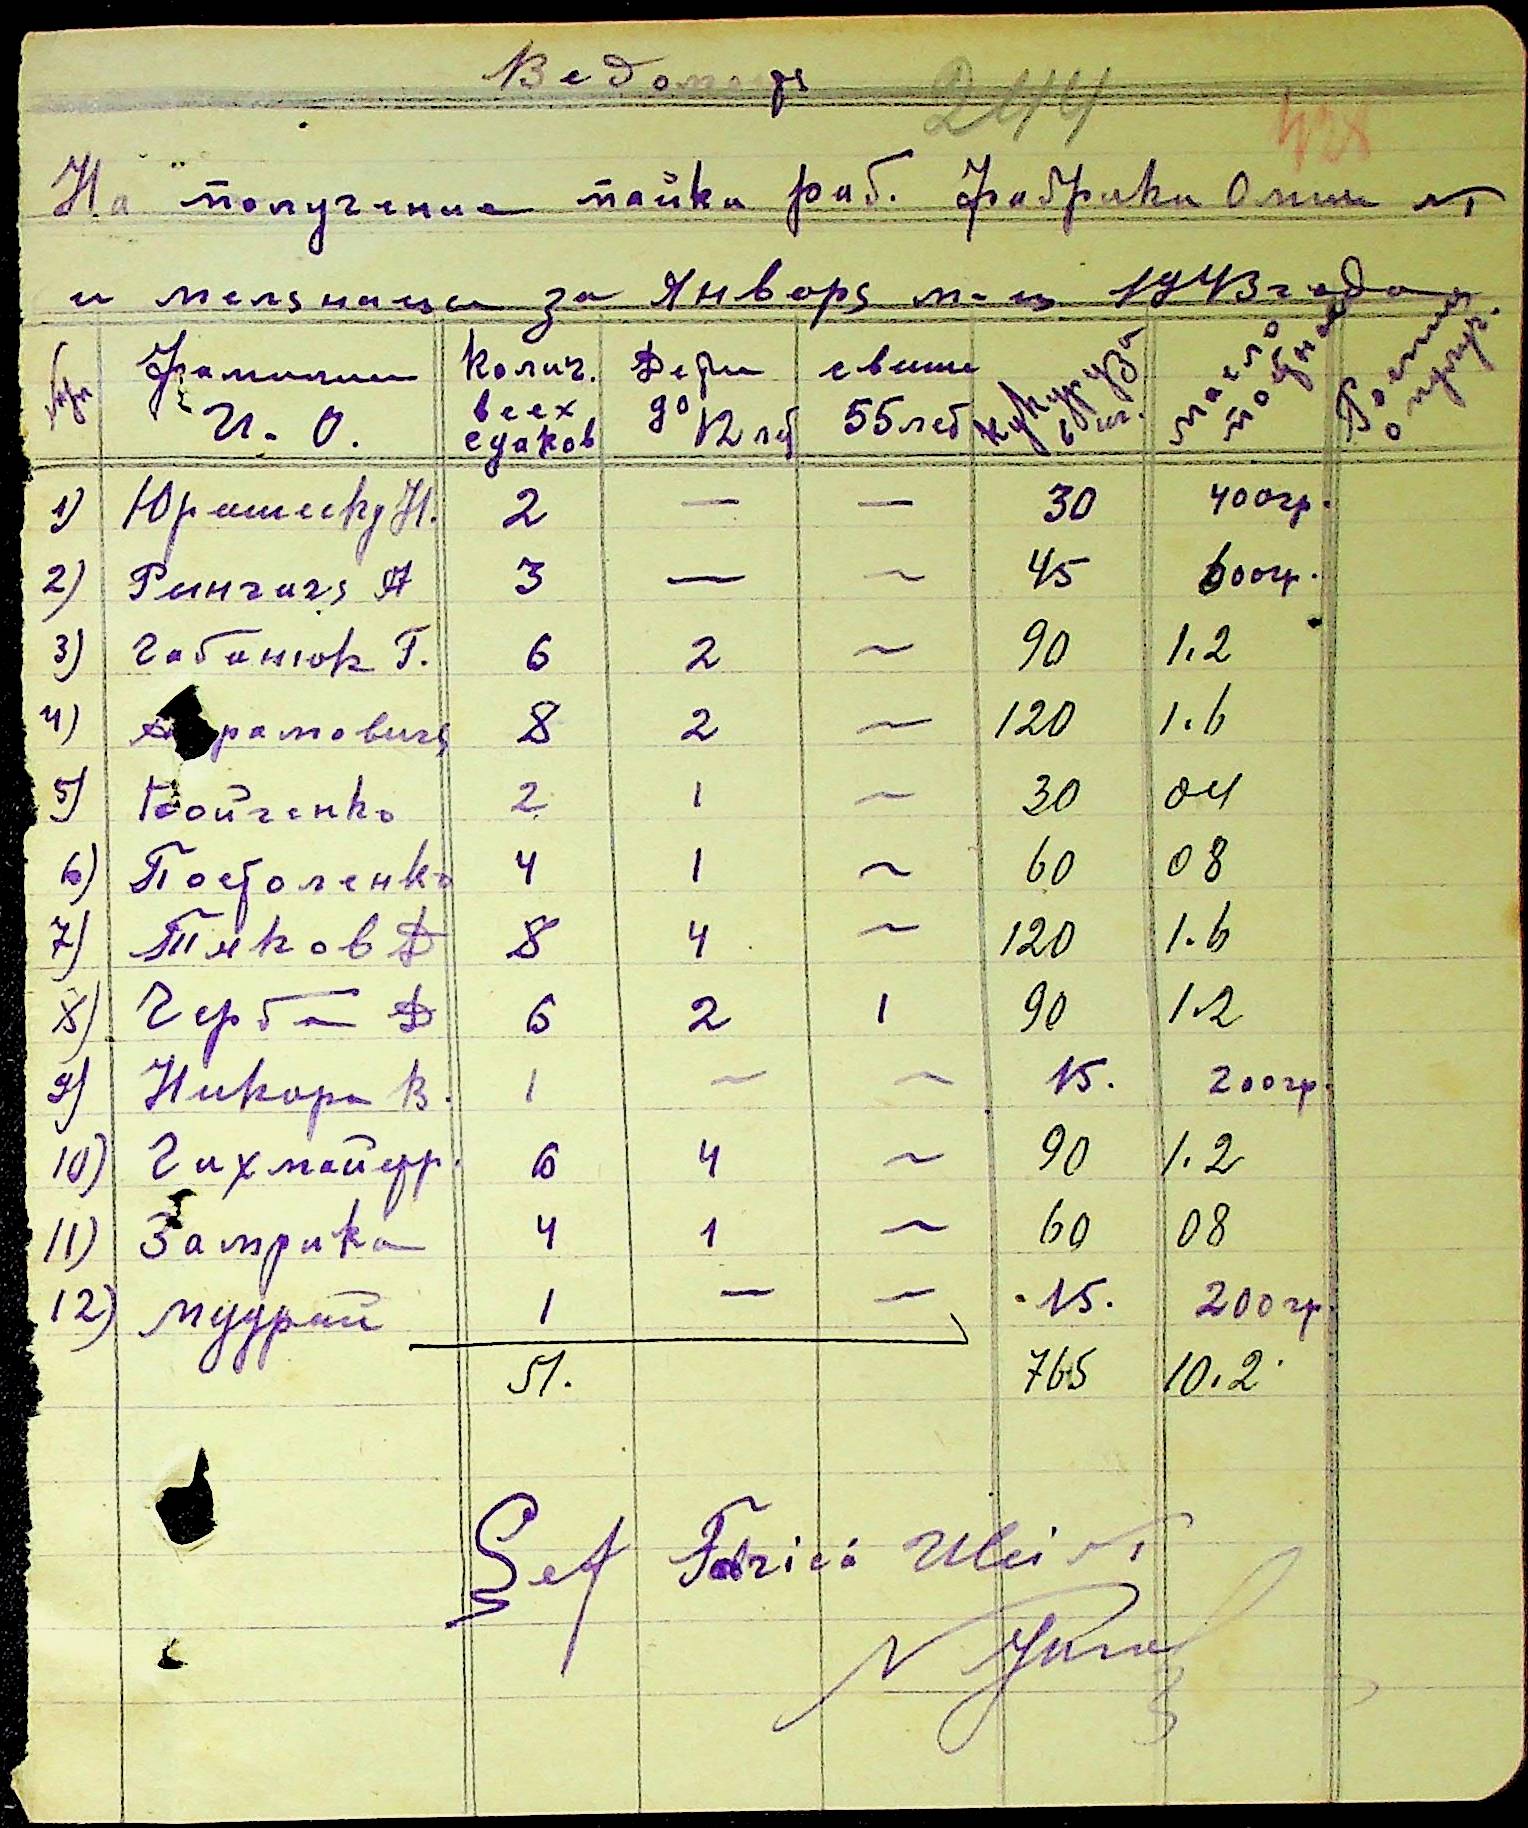 Ведомость
244
428
На получение пайка раб. фабрики Олии №1
и мельница за Январь м-ц 1943 года
Фамилии И. О. Колич. всех едаков Дети до 12 лет свыше 55 лет кукуруза в кг. масло подсолн Роспись о получ.
1) Юрашеску Н. 2 — — 30 400гр.
2) Рингачь А 3 — ~ 45 600гр.
3) Чабанюк Г. 6 2 ~ 90 1.2
4) А рамовичь 8 2 ~ 120 1.6
5) Бойченко 2 1 ~ 30 04
6) Постоленко 4 1 ~ 60 08
7) Тяков Д 8 4 ~ 120 1.6
8) Черба Д 6 2 1 90 1.2
9) Никора В. 1 ~ ~ 15. 200гр.
10) 6 4 ~ 90 1.2
11) Замрика 4 1 ~ 60 08
12) мудрый 1 — — 15. 200гр.
51. 765 10.2
Șef Fabrică Ulei №1